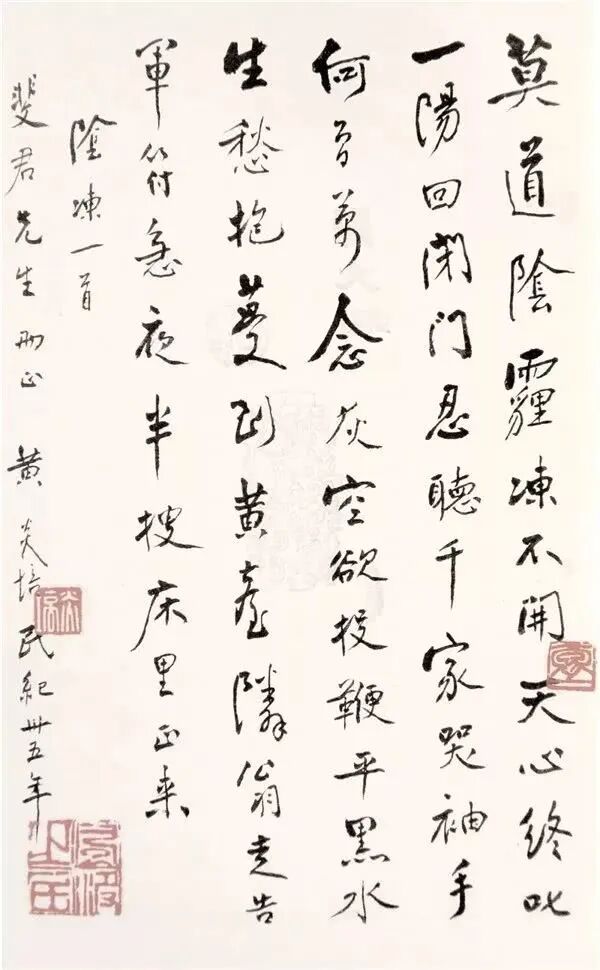 莫道陰霾凍不開天心終叱
一陽回閉門忍聽千家哭袖手
何曾萬念灰空欲投鞭平黑水
生愁抱蔓到黃臺隣翁走告
軍符急夜半搜床里正来
陰凍一首
斐君先生刪正 黃炎培 民紀卅五年